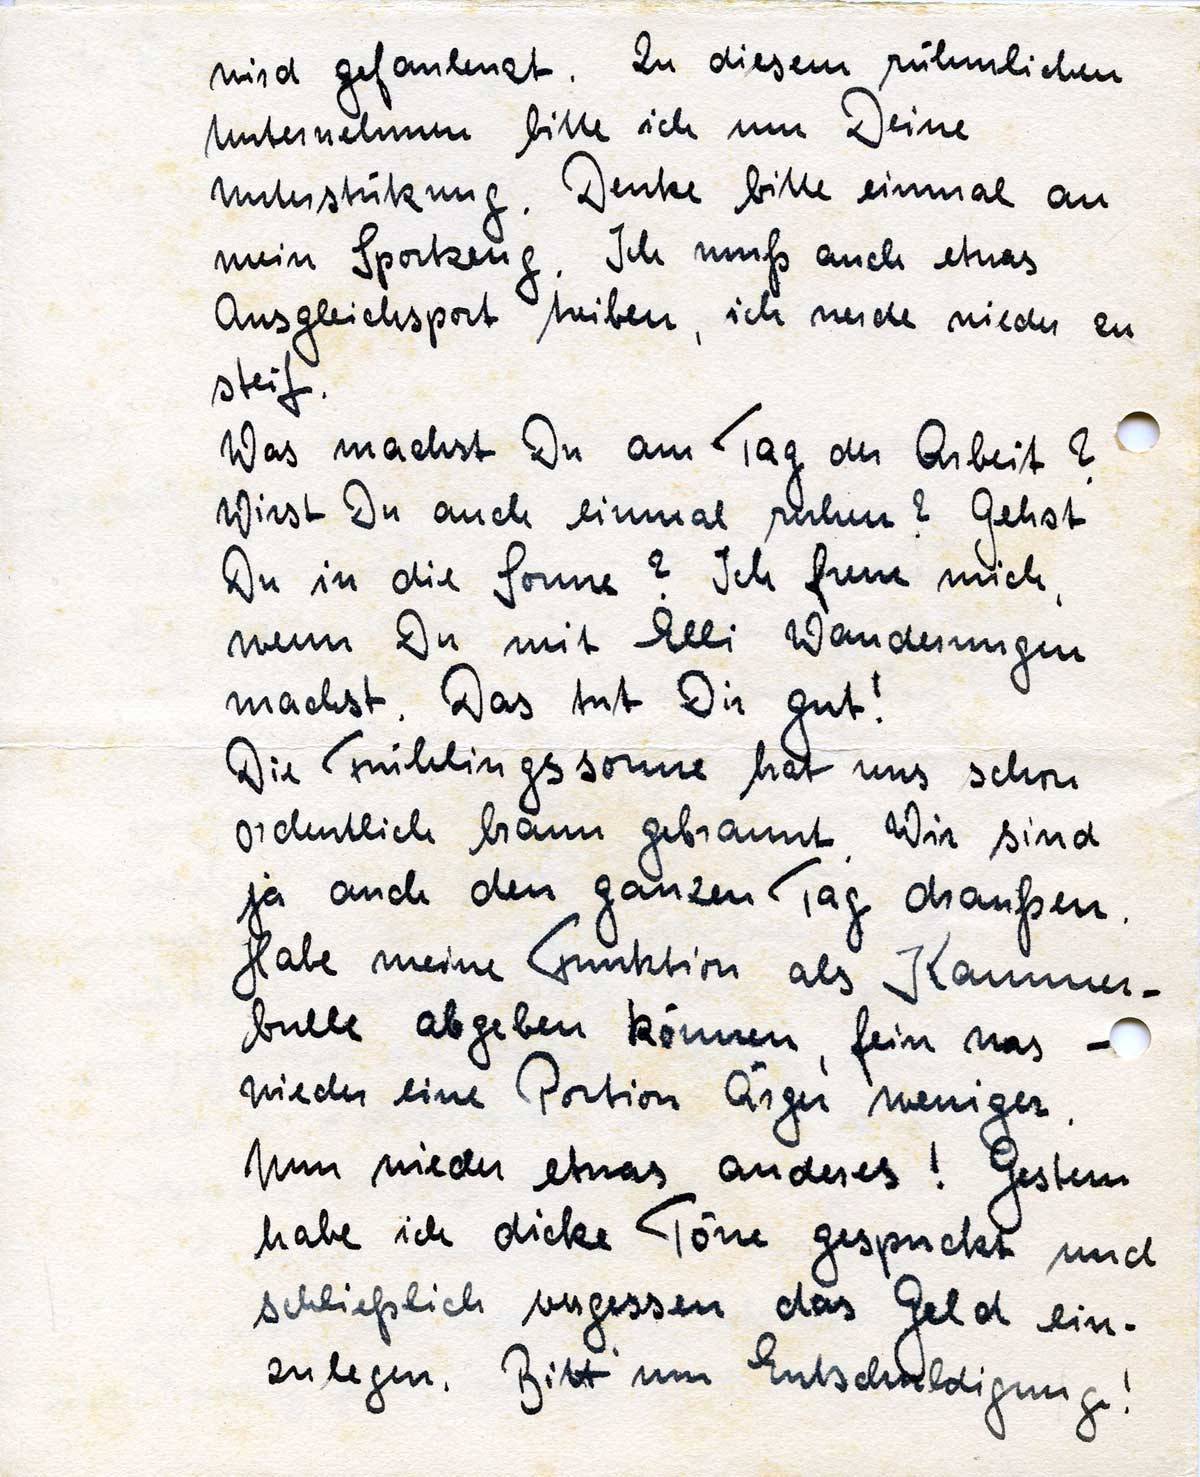 wird gefaulenzt. Zu diesem rühmlichen
Unternehmen bitte ich um Deine
Unterstützung. Denke bitte einmal an
mein Sportzeug. Ich muß auch etwas
Ausgleichsport treiben, ich werde wieder zu
steif.
Was machst Du am Tag der Arbeit?
Wirst Du auch einmal ruhen? Gehst
Du in die Sonne? Ich freue mich,
wenn Du mit Elli Wanderungen
machst. Das tut Dir gut!
Die Frühlingssonne hat uns schon
ordentlich braun gebrannt. Wir sind
ja auch den ganzen Tag draußen.
Habe meine Funktion als Kammer-
bulle abgeben können, fein was –
wieder eine Portion Ärger weniger.
Nun wieder etwas anderes! Gestern
habe ich dicke Töne gespuckt und
schließlich vergessen das Geld ein-
zulegen. Bitt um Entschuldigung!